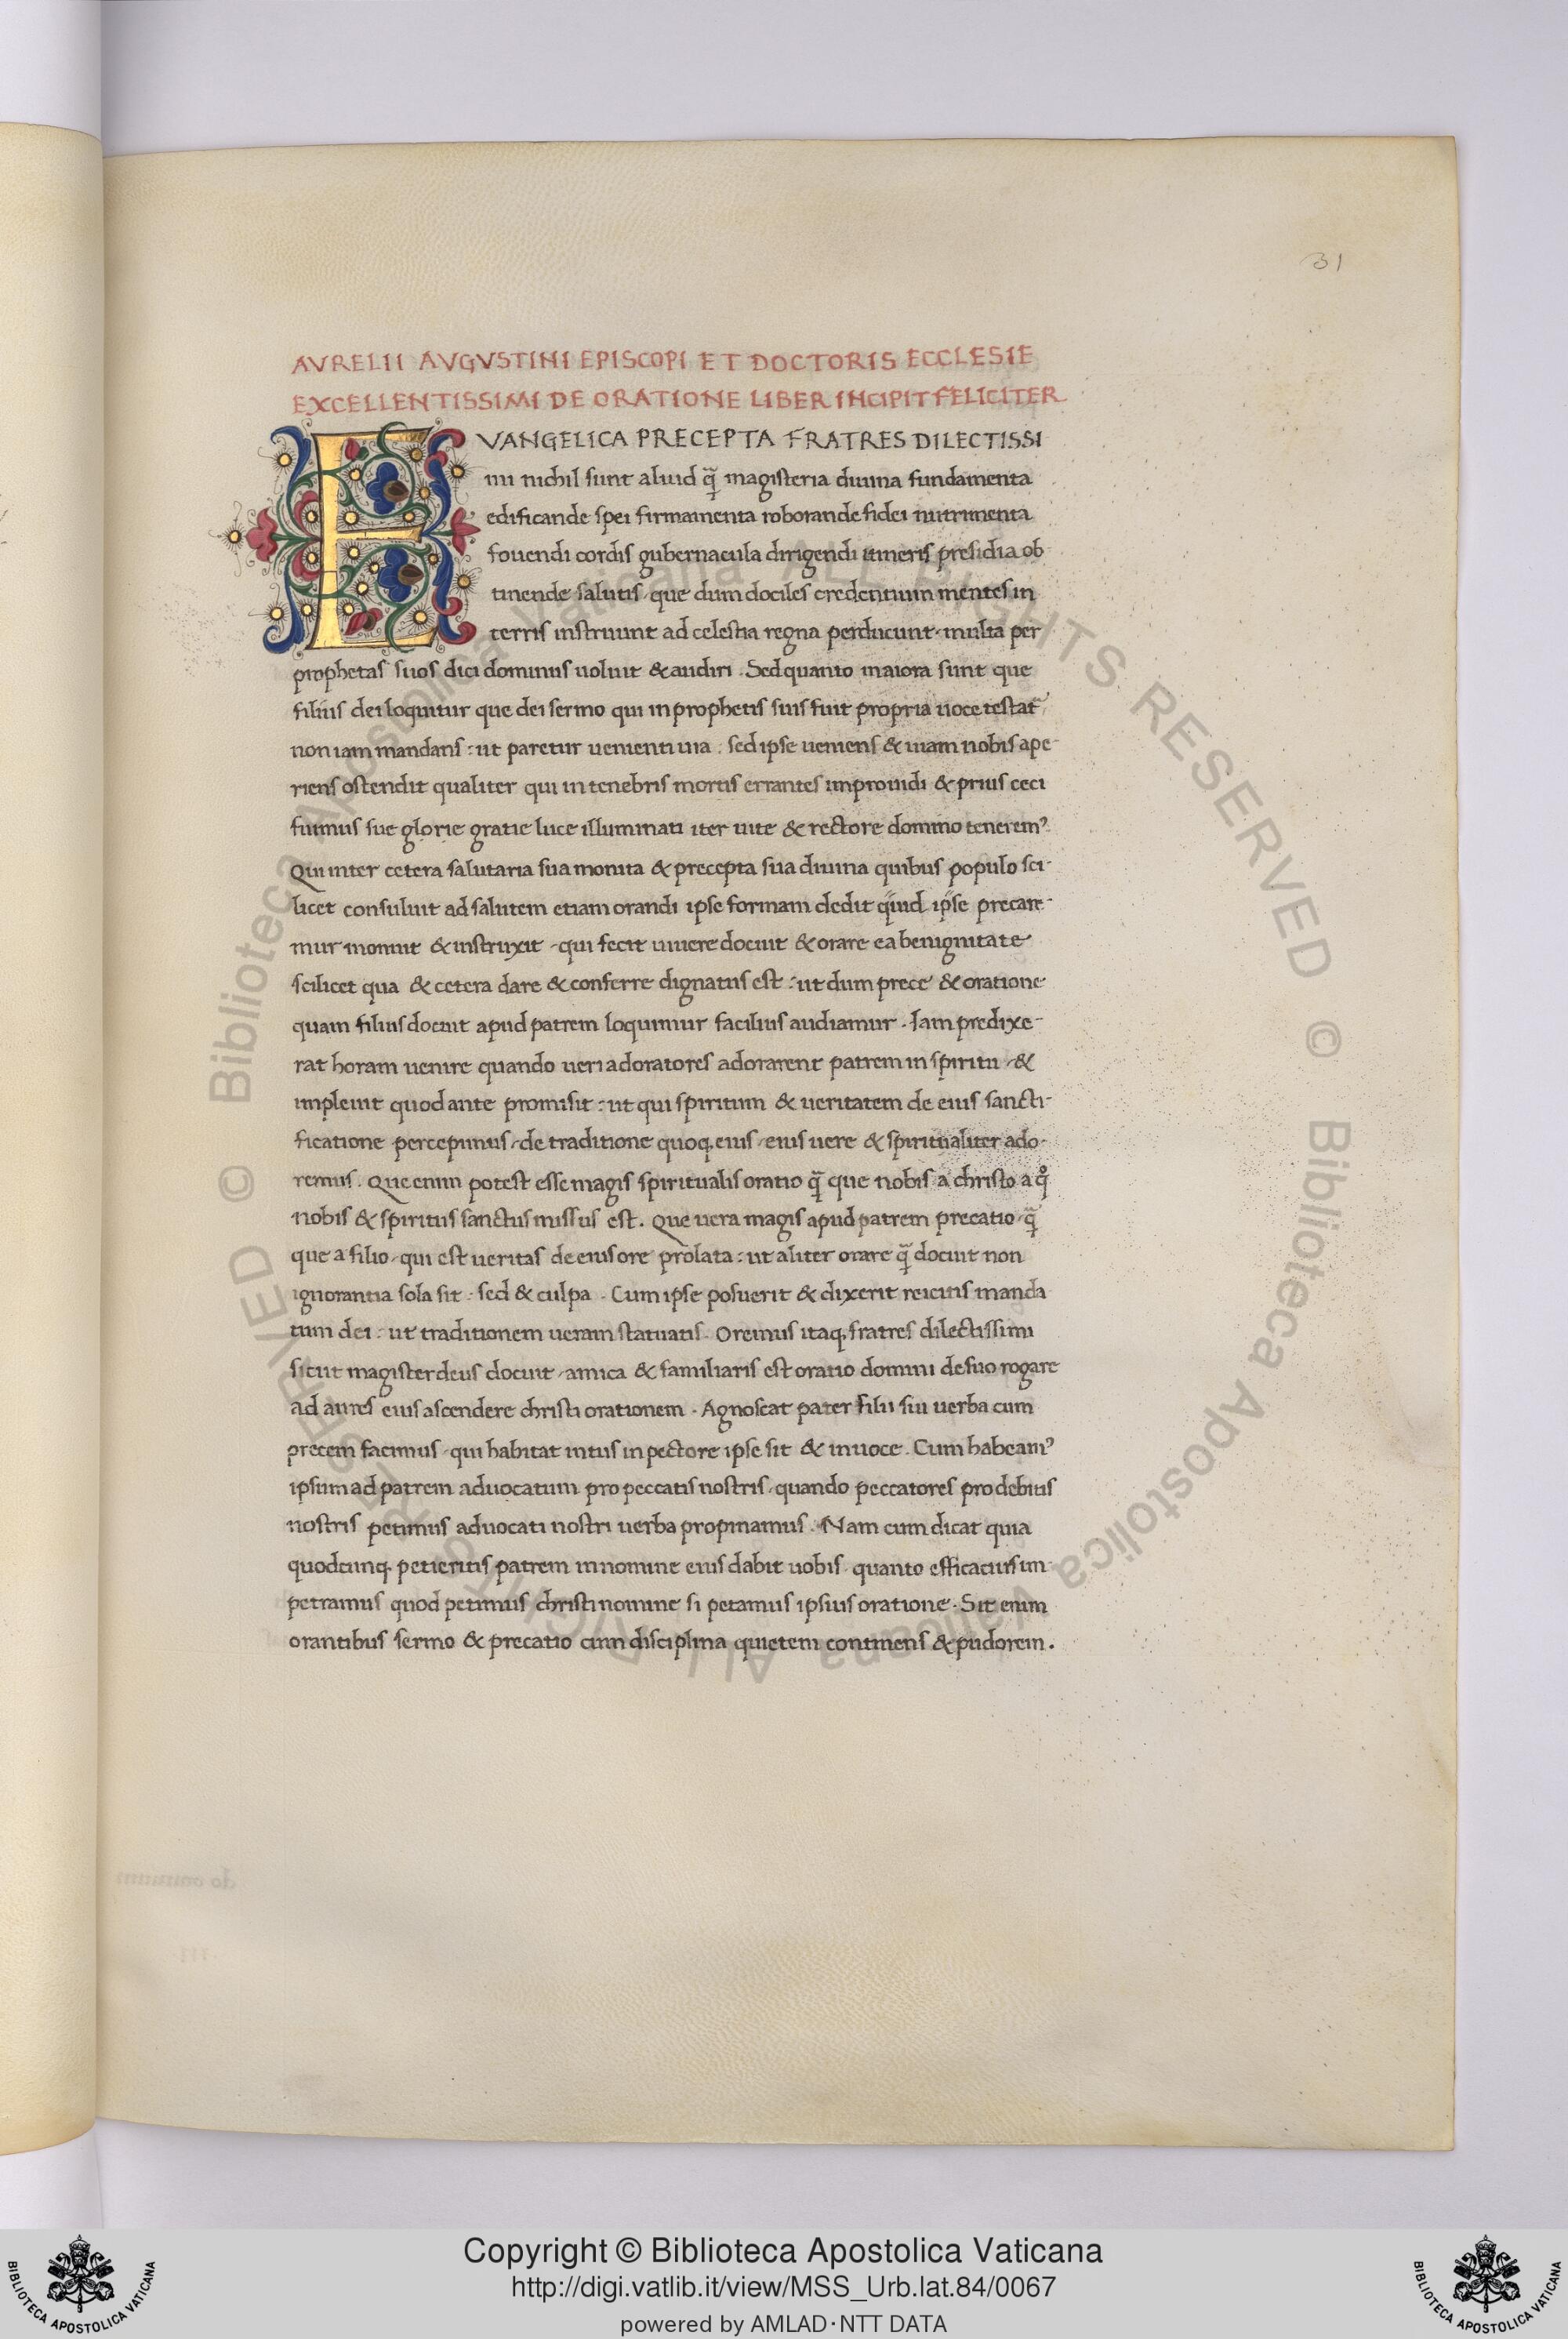 31
AVRELII AVGVSTINI EPISCOPI ET DOCTORIS ECCLESIE
EXCELLENTISSIMI DE ORATIONE LIBER INCIPIT FELICITER
EVANGELICA PRECEPTA FRATRES DILECTISSI
mi nichil sunt aliud q̃ magisteria diuina fundamenta
edificande spei firmamenta roborande fidei nutrimenta
fouendi cordis gubernacula dirigendi itineris presidia ob
tinende salutis, que dum dociles credentium mentes in
terris instruunt ad celestia regna perducunt. multa per
prophetas suos dici dominus uoluit & audiri. Sed quanto maiora sunt que
filius dei loquitur que dei sermo qui in prophetis suis fuit propria uoce testat᷑
non iam mandans: ut paretur uenienti uia: sed ipse ueniens & uiam nobis ape-
riens ostendit qualiter qui in tenebris mortis errantes improuidi & prius ceci
fuimus sue glorie gratie luce illuminati iter uite & rectore domino teneremꝰ.
Qui inter cetera salutaria sua monita & precepta sua diuina quibus populo sci-
licet consuluit ad salutem etiam orandi ipse formam dedit quid ipse precare-
mur monuit & instruxit, qui fecit uiuere docuit & orare ea benignitate
scilicet qua & cetera dare & conferre dignatus est: ut dum prece & oratione
quam filius docuit apud patrem loquimur facilius audiamur. Iam predixe-
rat horam uenire quando ueri adoratores adorarent patrem in spiritu, &
impleuit quod ante promisit: ut qui spiritum & ueritatem de eius sancti-
ficatione percepimus, de traditione quoq, eius, eius uere & spiritualiter ado-
remus. Que enim potest esse magis spiritualis oratio q̃ que nobis a christo a q̊
nobis & spiritus sanctus missus est. Que uera magis apud patrem precatio, q̃
que a filio, qui est ueritas de eius ore prolata: ut aliter orare q̃ docuit non
ignorantia sola sit: sed & culpa. Cum ipse posuerit & dixerit reicitis manda
tum dei: ut traditionem ueram statuatis. Oremus itaq, fratres dilectissimi
sicut magister deus docuit, amica & familiaris est oratio domini de suo rogare
ad aures eius ascendere christi orationem. Agnoscat pater filii sui uerba cum
precem facimus, qui habitat intus in pectore ipse sit & in uoce. Cum habeamꝰ
ipsum ad patrem aduocatum pro peccatis nostris, quando peccatores pro debitis
nostris petimus aduocati nostri uerba propinamus. Nam cum dicat quia
quodcunq, petieritis patrem in nomine eius dabit uobis, quanto efficacius im-
petramus quod petimus christi nomine si petamus ipsius oratione. Sit enim
orantibus sermo & precatio cum disciplina quietem continens & pudorem.
© Biblioteca Apostolica Vaticana ALL RIGHTS RESERVED © Biblioteca Apostolica Vaticana ALL RIGHTS RESERVED
Copyright © Biblioteca Apostolica Vaticana
http://digi.vatlib.it/view/MSS_Urb.lat.84/0067
powered by AMLAD·NTT DATA
BIBLIOTECA APOSTOLICA VATICANA
BIBLIOTECA APOSTOLICA VATICANA